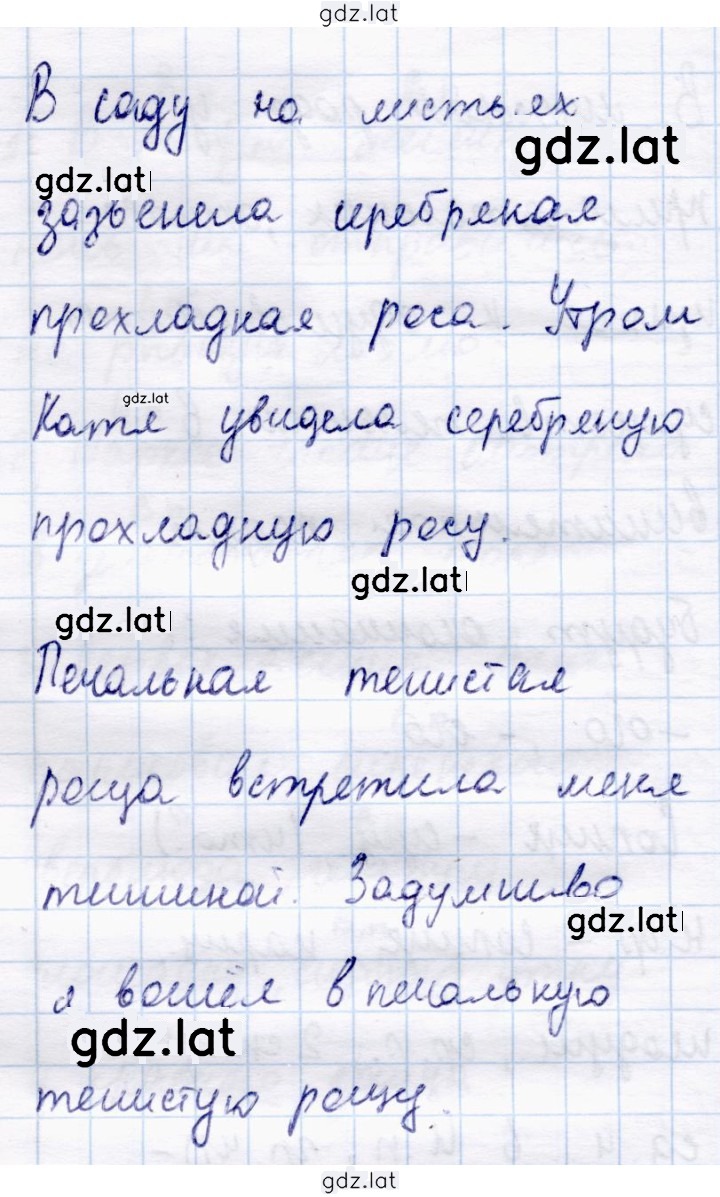 gdz.lat
В саду на листьях
gdz.lat
gdz.lat
серебряная
прохладная роса. Утром
gdz.lat
Катя увидела серебряную
прохладную росу.
gdz.lat
gdz.lat
Печальная тенистая
роща встретила меня
тишиной. Задумчиво
gdz.lat
я вошёл в печальную
gdz.lat
тенистую рощу.
gdz.lat